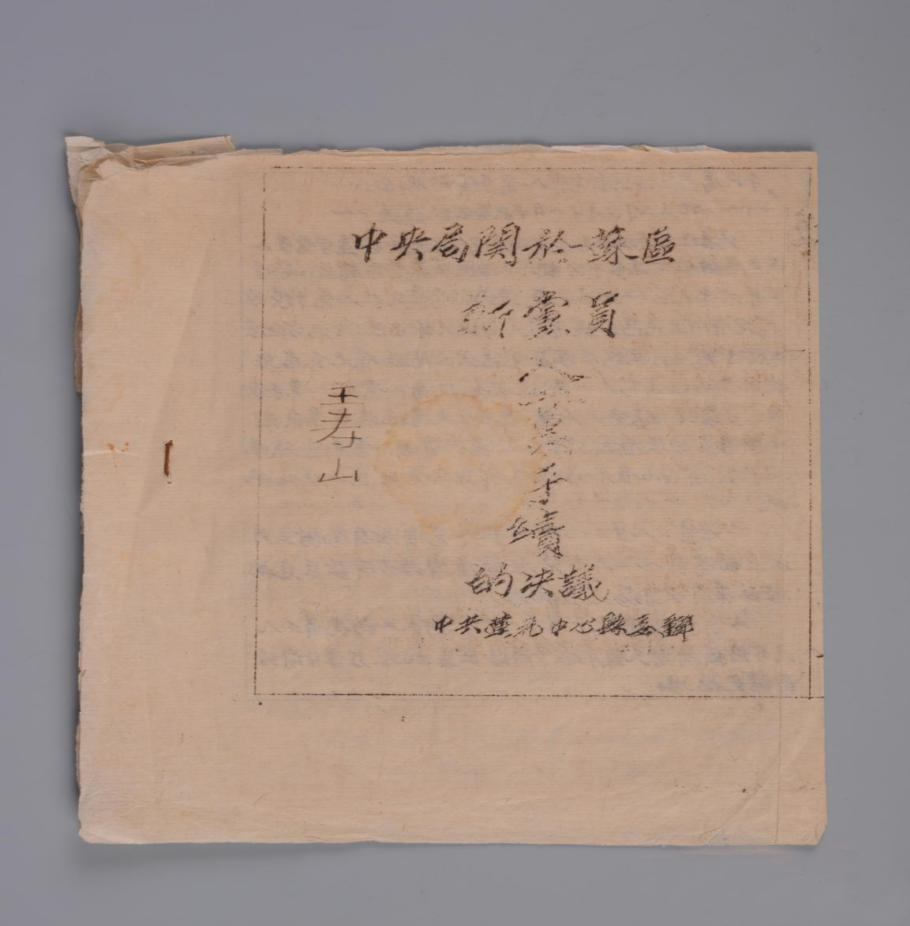 中央局関於蘇區
新黨員
入黨手續
的决議
中共 中心縣委翻
王寿山